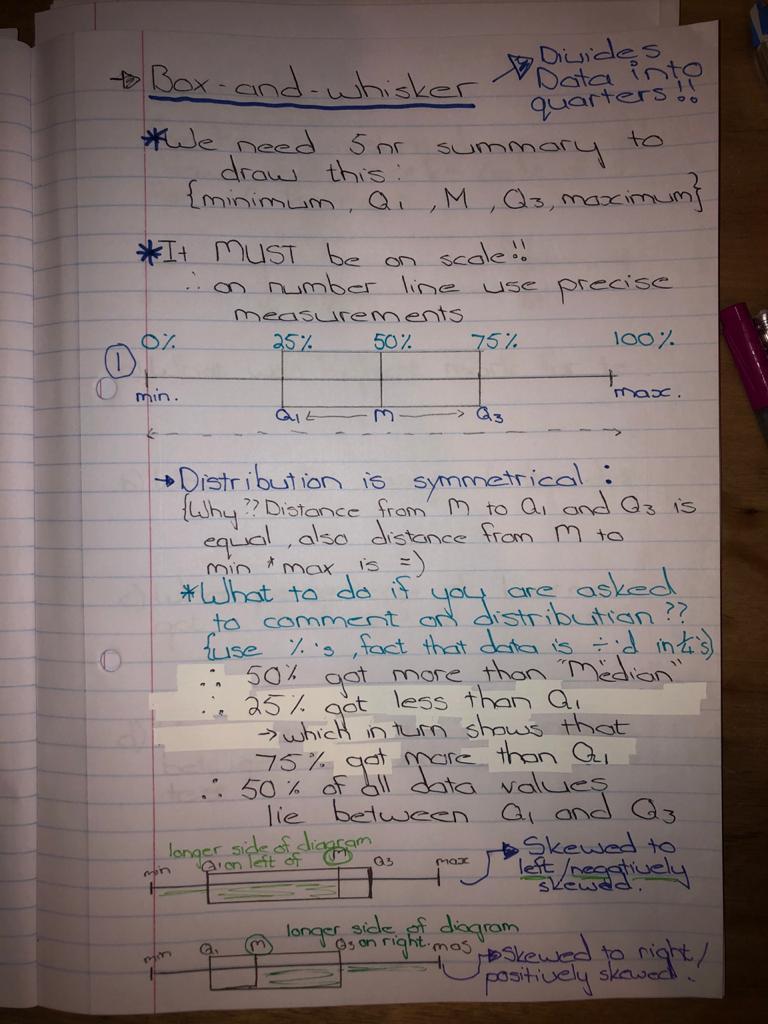 → Box-and-whisker
→ Divides
Data into
quarters!!
*We need 5 nr summary to
draw this:
{minimum, Q1, M, Q3, maximum}
*It MUST be on scale!!
∴ on number line use precise
measurements
① 0% 25% 50% 75% 100%
min. max.
Q1 ← M → Q3
→ Distribution is symmetrical:
{Why?? Distance from M to Q1 and Q3 is
equal, also distance from M to
min * max is =)
*What to do if you are asked
to comment on distribution??
{use %'s, fact that data is ÷'d in ¼'s)
∴ 50% got more than "Median"
∴ 25% got less than Q1
→ which in turn shows that
75% got more than Q1
∴ 50% of all data values
lie between Q1 and Q3
longer side of diagram
on left of M
min Q1 Q3 max
→ Skewed to
left/negatively
skewed.
longer side of diagram
on right.
min Q1 M Q3 mas
→ Skewed to right/
positively skewed.